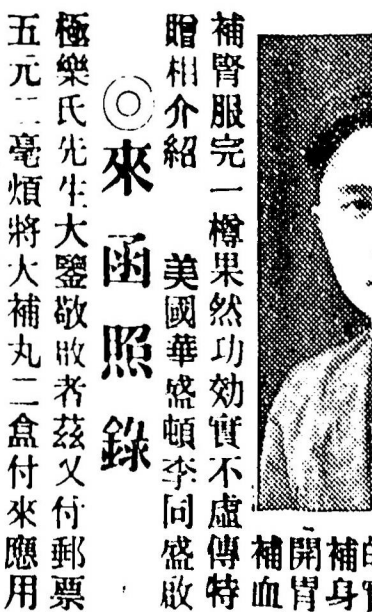 補身
開胃
補血
補腎服完一樽果然功効實不虛傳特
贈相介紹　美國華盛頓李同盛啟
◎來函照錄
極樂氏先生大鑒敬啟者茲又付郵票
五元二毫煩將大補丸二盒付來應用